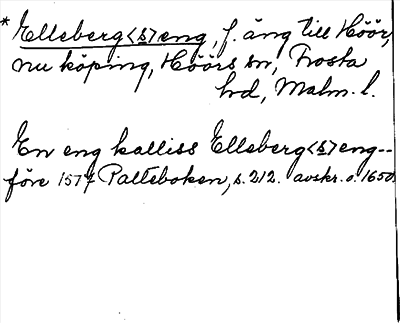 * Elleberg<s>eng, f. äng till Höör,
nu köping, Höörs sn, Frosta
hd, Malm. l.
En eng kalliss Elleberg<s>eng--
före 1574 Palteboken, s. 212. avskr. o. 1650.